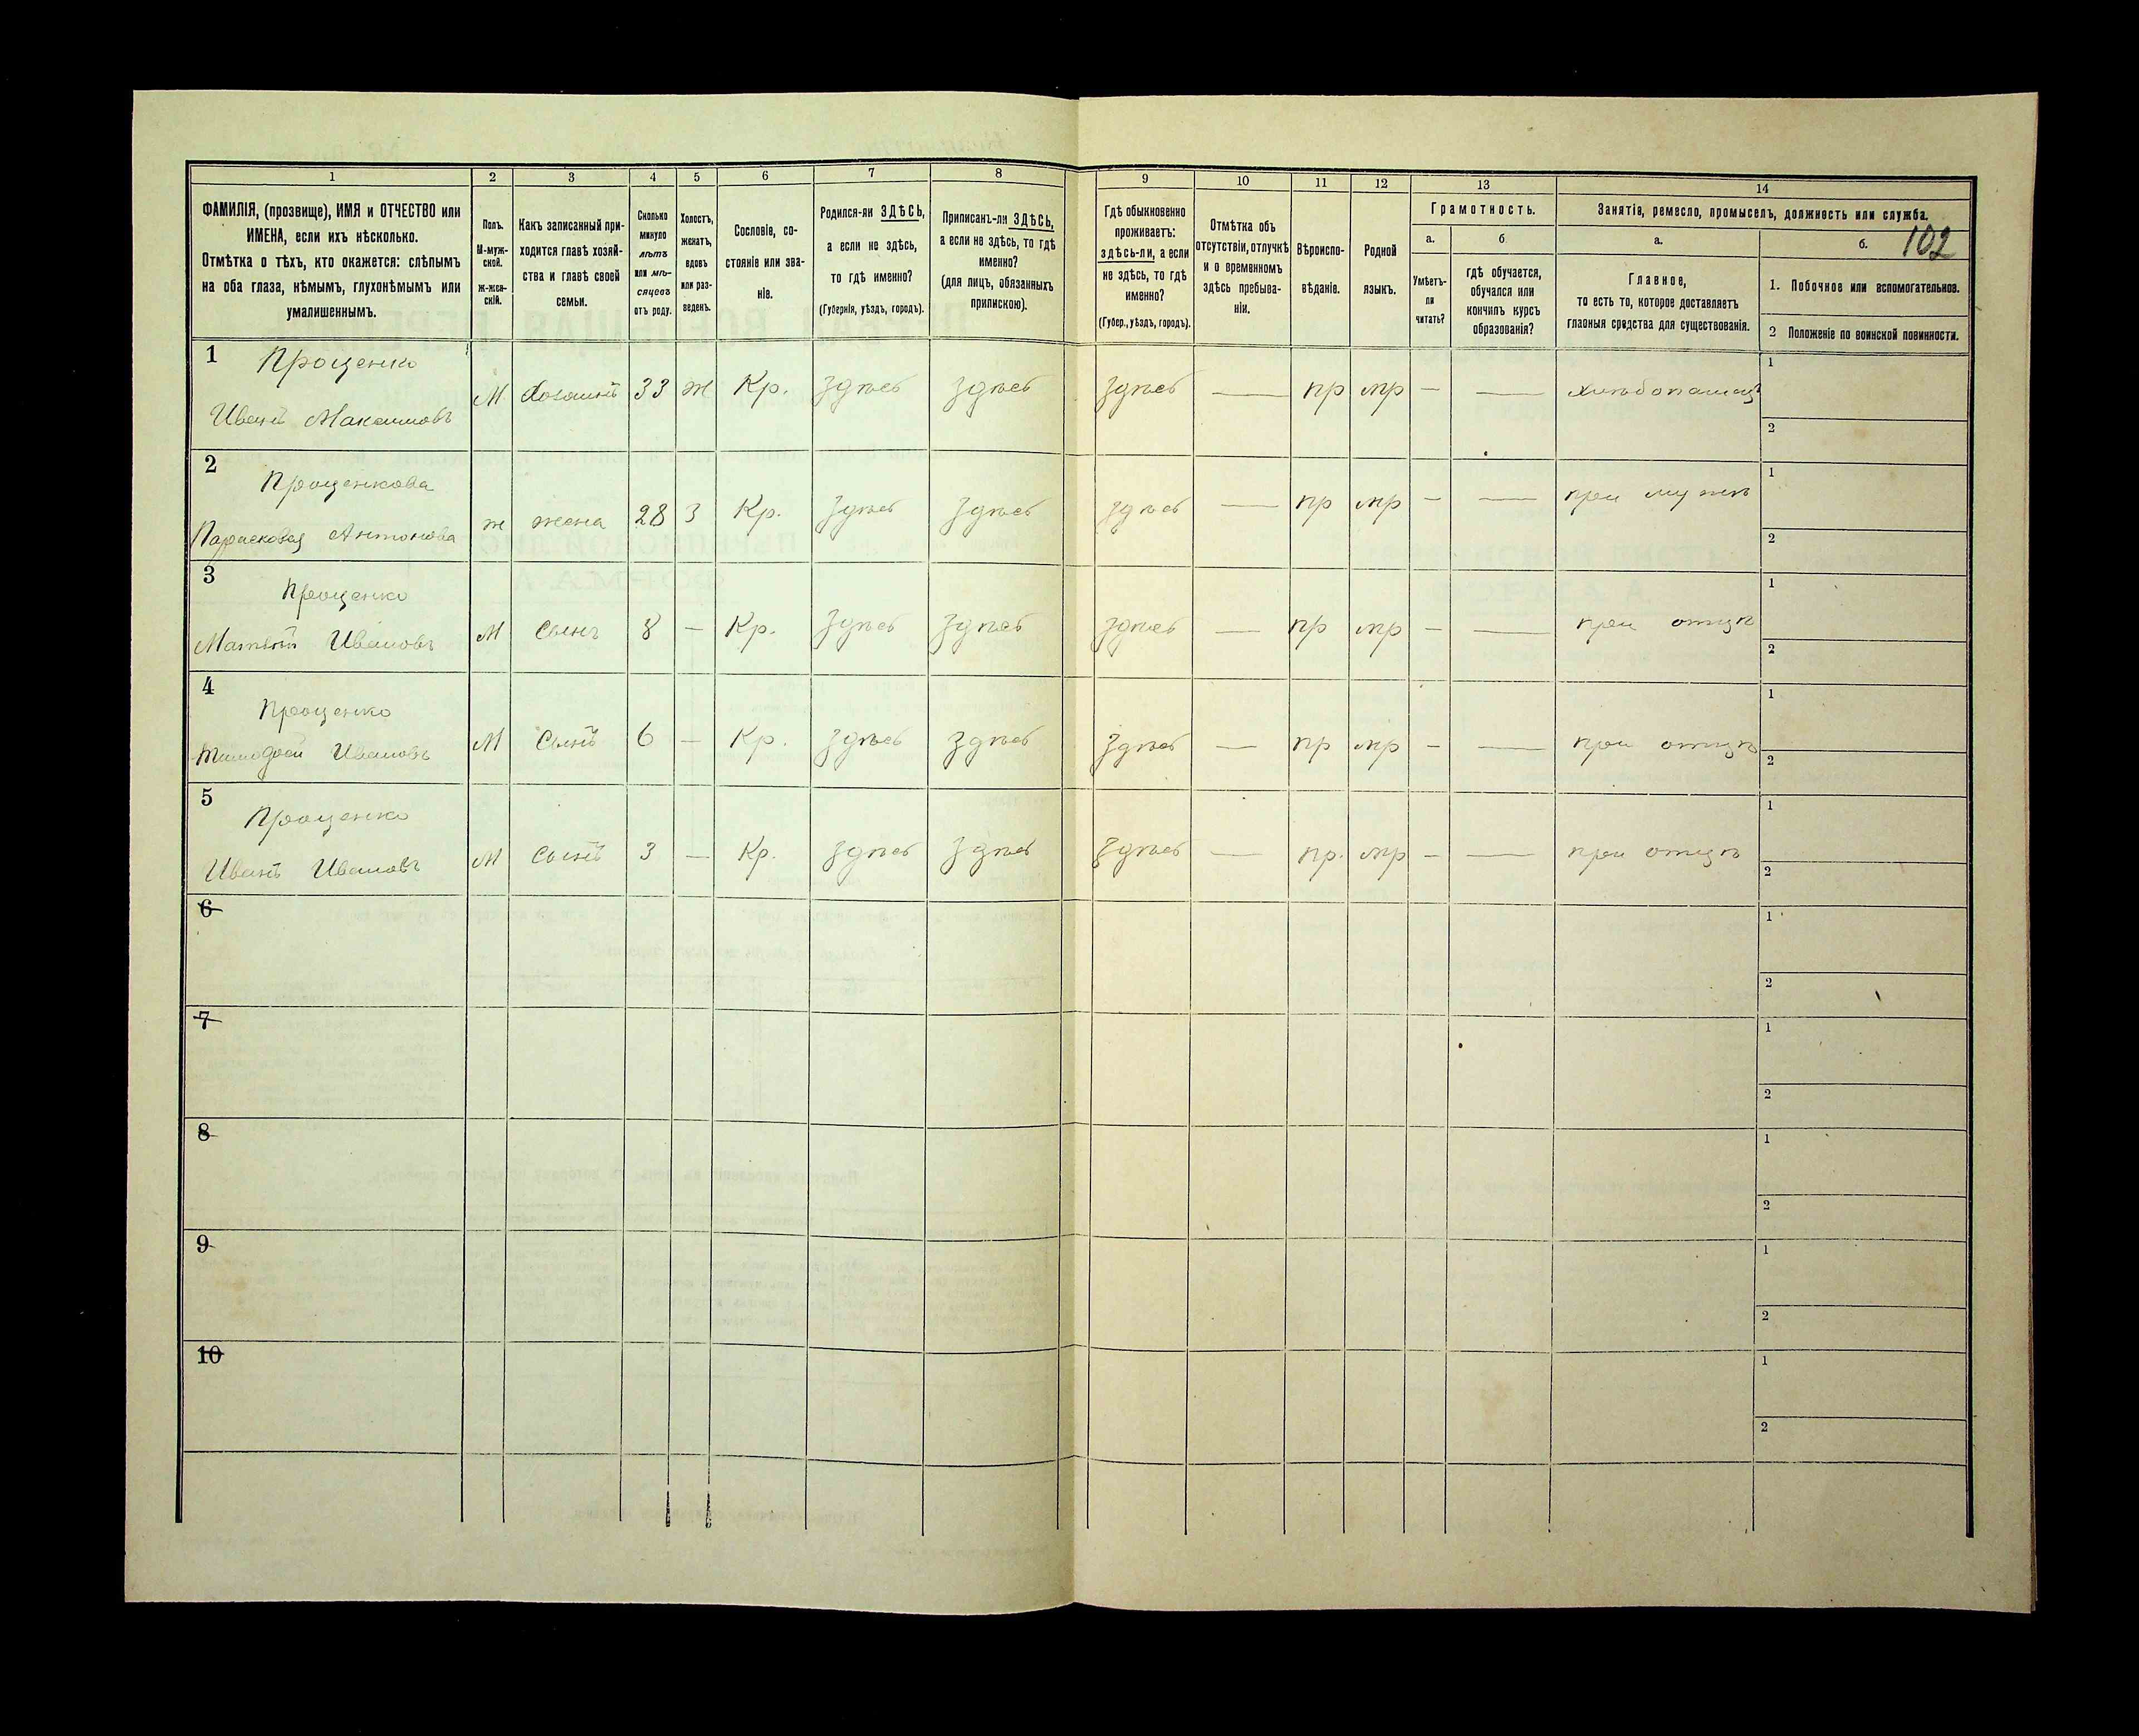 1 2 3 4 5 6 7 8 9 10 11 12 13 14
ФАМИЛІЯ, (прозвище), ИМЯ и ОТЧЕСТВО или
ИМЕНА, если ихъ нѣсколько.
Отмѣтка о тѣхъ, кто окажется: слѣпымъ
на оба глаза, нѣмымъ, глухонѣмымъ или
умалишеннымъ.
Полъ.
М-муж-
ской.
ж-жен-
скій.
Какъ записанный при-
ходится главѣ хозяй-
ства и главѣ своей
семьи.
Сколько
минуло
лѣтъ
или мѣ-
сяцевъ
отъ роду.
Холостъ,
женатъ,
вдовъ
или раз-
веденъ.
Сословіе, со-
стояніе или зва-
ніе.
Родился-ли ЗДѢСЬ,
а если не здѣсь,
то гдѣ именно?
(Губернія, уѣздъ, городъ).
Приписанъ-ли ЗДѢСЬ,
а если не здѣсь, то гдѣ
именно?
(для лицъ, обязанныхъ
припискою).
Гдѣ обыкновенно
проживаетъ:
здѣсь-ли, а если
не здѣсь, то гдѣ
именно?
(Губер., уѣздъ, городъ).
Отмѣтка объ
отсутствіи, отлучкѣ
и о временномъ
здѣсь пребыва-
ніи.
Вѣроиспо-
вѣданіе.
Родной
языкъ.
Грамотность.
а. б
Умѣетъ-
ли
читать?
гдѣ обучается,
обучался или
кончилъ курсъ
образованія?
Занятія, ремесло, промыселъ, должность или служба.
а. б. 102
Главное,
то есть то, которое доставляетъ
главныя средства для существованія.
1. Побочное или вспомогательное.
2 Положеніе по воинской повинности.
1 Проценко
Иванъ Максимовъ М Хозяинъ 33 ж Кр. здѣсь здѣсь здѣсь — пр мр — — хлѣбопашец 1
2
2 Проценкова
Парасковья Антонова ж жена 28 З Кр. здѣсь здѣсь здѣсь — пр мр — — при мужѣ 1
2
3 Проценко
Матвѣй Ивановъ М Сынъ 8 — Кр. здѣсь здѣсь здѣсь — пр мр — — при отцѣ 1
2
4 Проценко
Тимофей Ивановъ М Сынъ 6 — Кр. здѣсь здѣсь здѣсь — пр мр — — при отцѣ 1
2
5 Проценко
Иванъ Ивановъ М Сынъ 3 — Кр. здѣсь здѣсь здѣсь — пр. мр — — при отцѣ 1
2
6 1
2
7 1
2
8 1
2
9 1
2
10 1
2